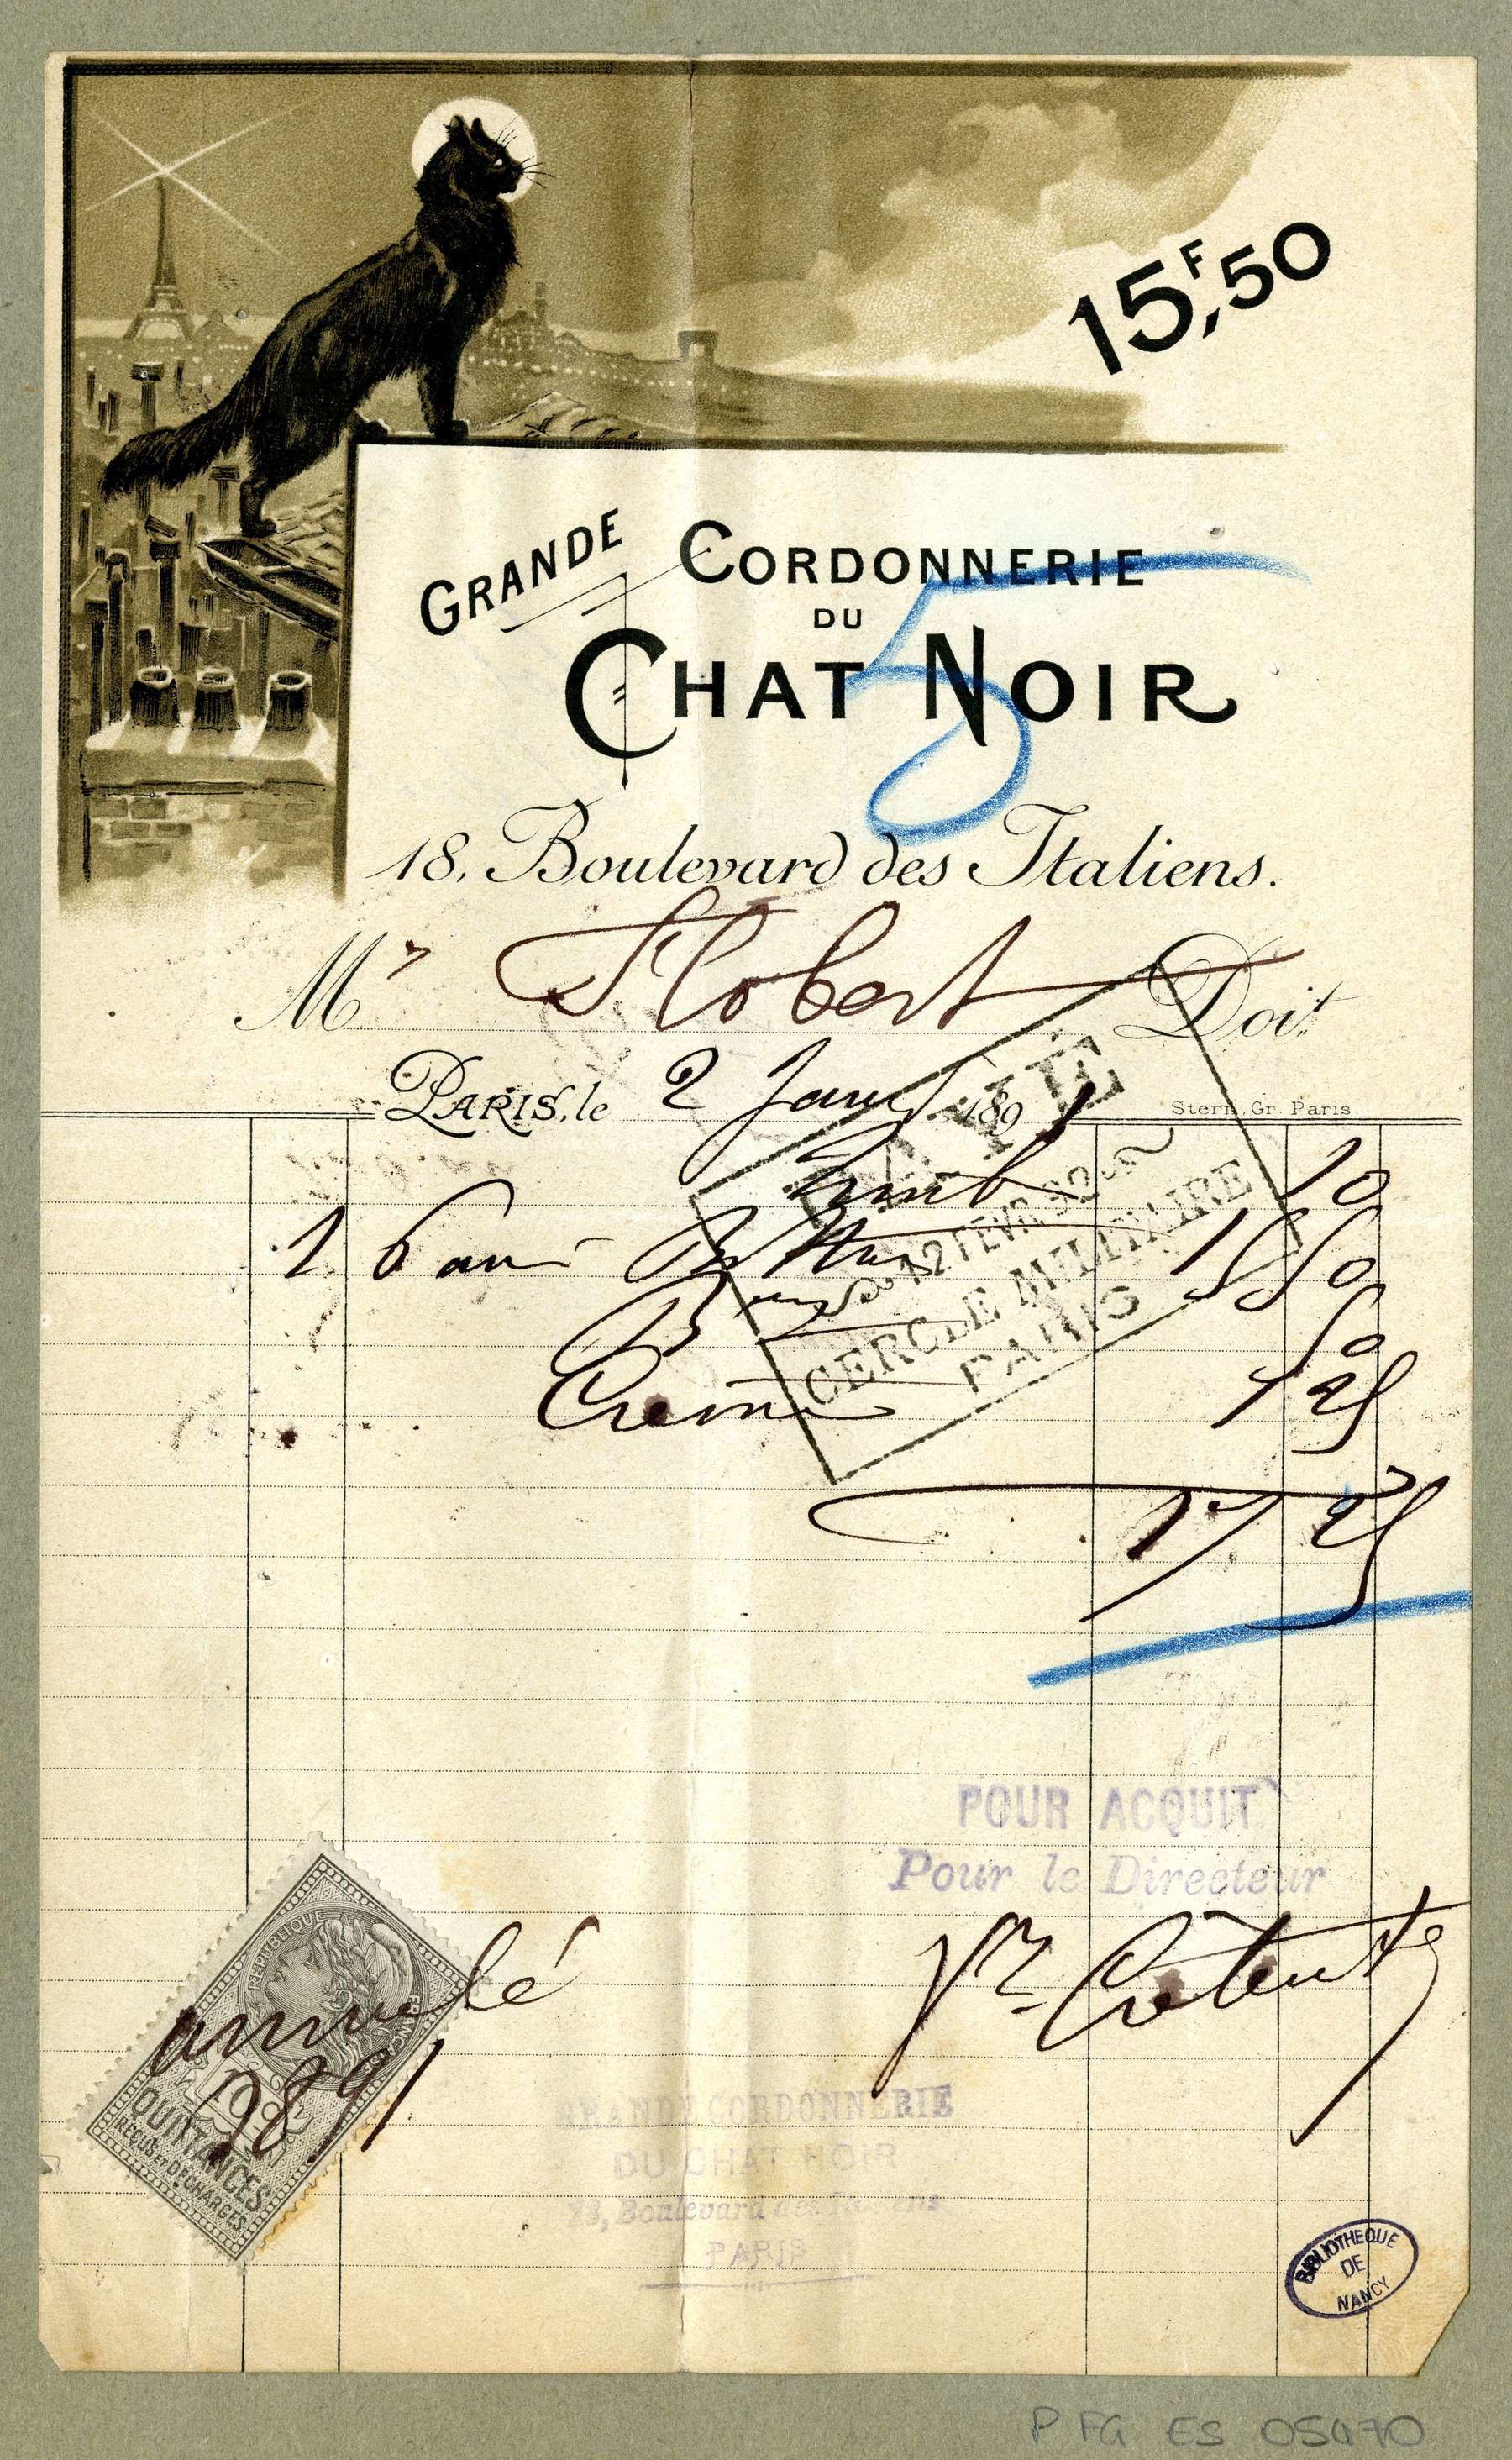 15F,50
GRANDE CORDONNERIE
DU
CHAT NOIR
5
18, Boulevard des Italiens.
Mr Flobert Doit
PARIS, le 2 Janv 1891
Stern Gr. Paris.
PAYÉ
12 FEVR 92
CERCLE MILITAIRE
PARIS
Timb 10
1 Paire Bottines 15 50
50
Crème 1 25
17 25
POUR ACQUIT
Pour le Directeur
REPUBLIQUE FRANÇAISE
10c
QUITTANCES
REÇUS ET DÉCHARGES
annulé
2891
GRANDE CORDONNERIE
DU CHAT NOIR
Boulevard des Italiens
PARIS
BIBLIOTHEQUE
DE
NANCY
P FG ES 05470